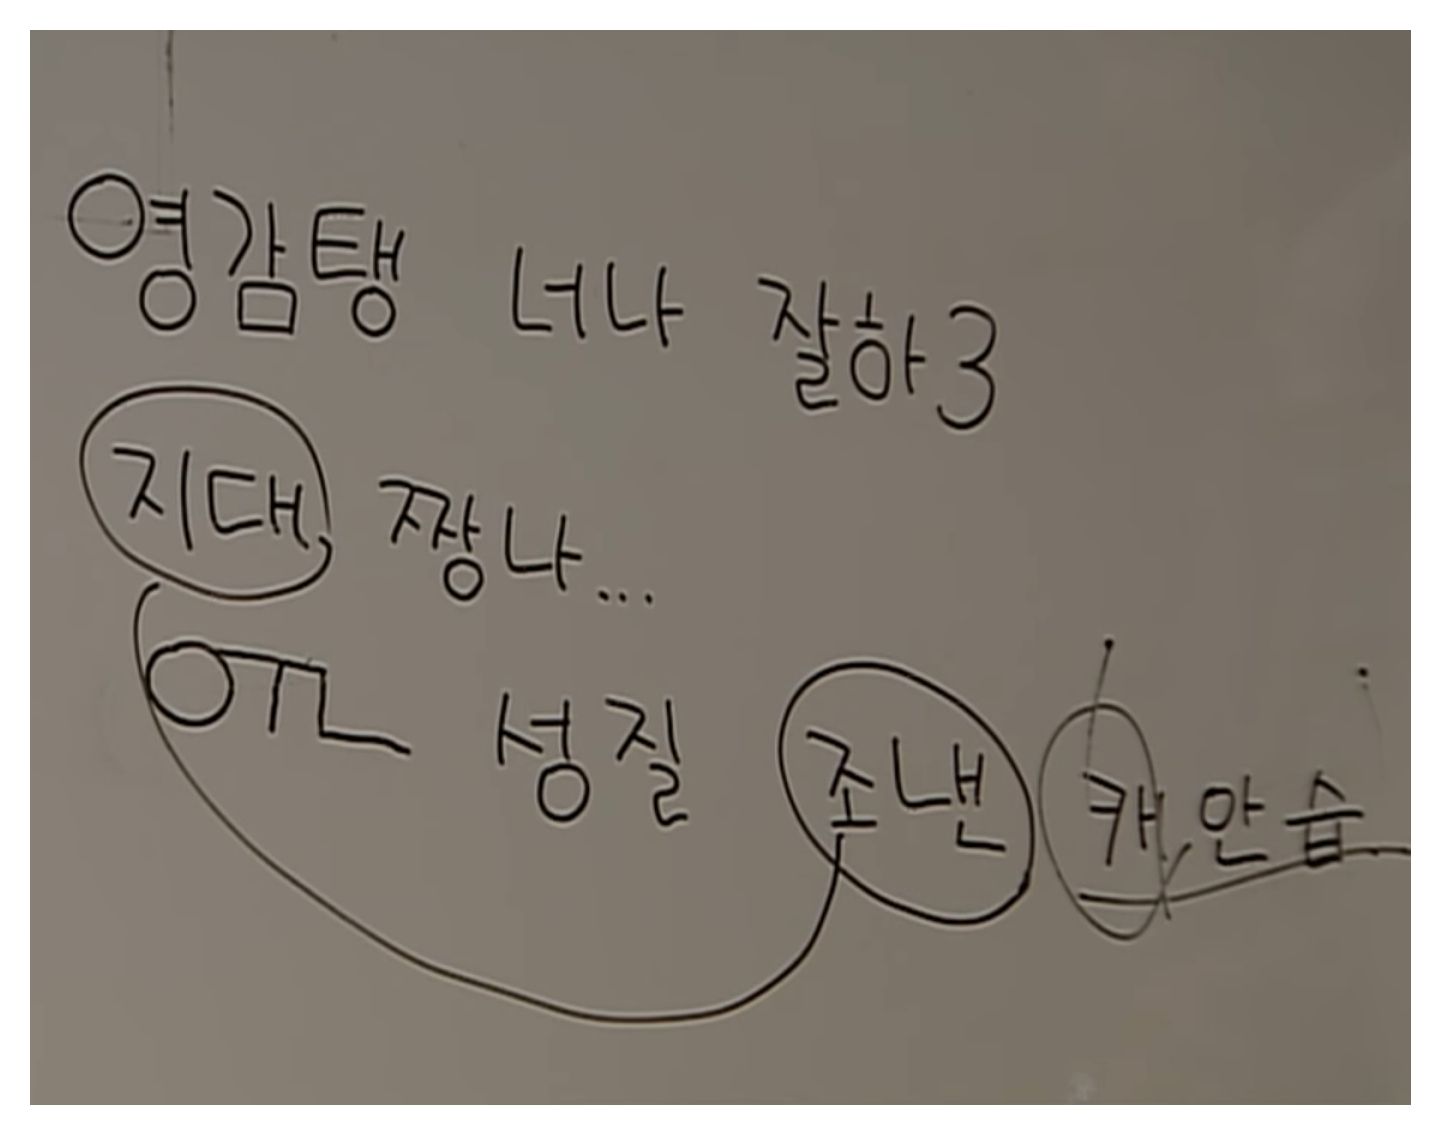 영감탱 너나 잘하3
지대 짱나...
OTL 성질 조낸 캐안습